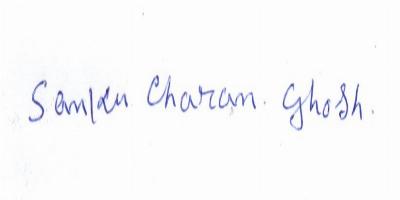 Sanku Charan. Ghosh.